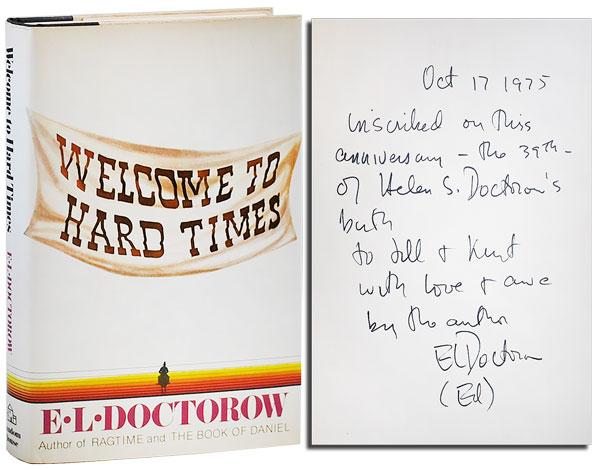 Welcome to Hard Times
E·L·DOCTOROW
Random
House
WELCOME TO
HARD TIMES
E·L·DOCTOROW
Author of RAGTIME and THE BOOK OF DANIEL
Oct 17 1975
Inscribed on this
anniversary – the 39th –
of Helen S. Doctorow's
birth
to Jill & Kurt
with love & awe
by the author
EL Doctorow
(Ed)